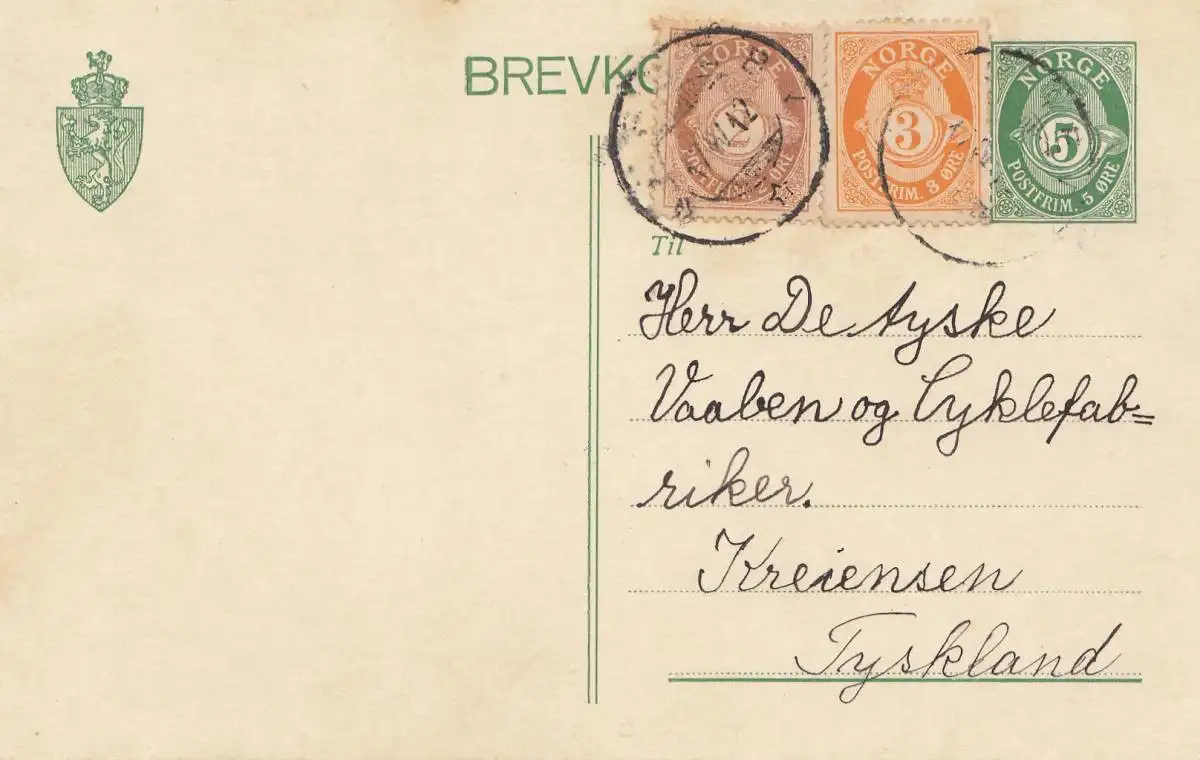 BREVKO
NORGE
POSTFRIM. ØRE
NORGE
3
POSTFRIM. 3 ØRE
NORGE
5
POSTFRIM. 5 ØRE
Til
Herr De tyske
Vaaben og Cyklefab=
riker.
Kreiensen
Tyskland